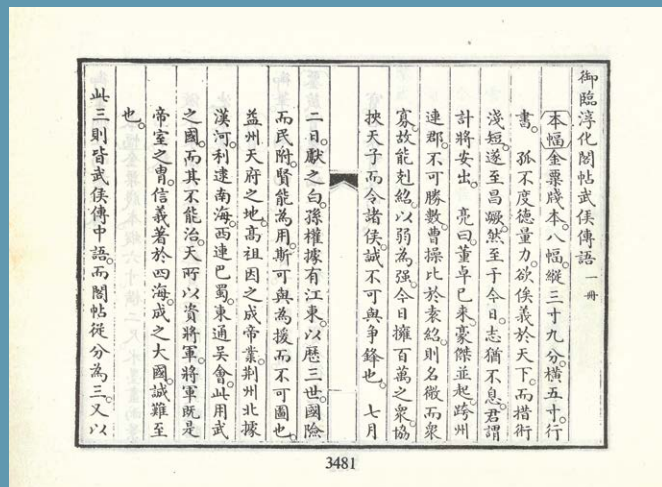 御臨淳化閣帖武侯傳語一冊
本幅金粟牋本八幅縱三寸九分橫五寸行
書。孤不度德量力。欲俟義於天下。而措術
淺短。遂至昌蹶。然至于今日。志猶不息。君謂
計將安出。亮曰。董卓已來。豪傑並起。跨州
連郡。不可勝數。曹操比於袁紹。則名微而衆
寡。故能剋紹。以弱為强。今日擁百萬之衆。協
挾天子而令諸侯。誠不可與争鋒也。七月
二日。獻之白。孫權據有江東。以歷三世。國險
而民附。賢能為用。斯可與為援而不可圖也。
益州天府之地。高祖因之成帝業。荆州北據
漢河。利逮南海。西連巴蜀。東通吳會。此用武
之國。而其不能治。天所以資將軍。將軍既是
帝室之胄。信義著於四海。成之大國。誠難至
也。
此三則皆武侯傳中語。而閣帖從分為三。又以
3481